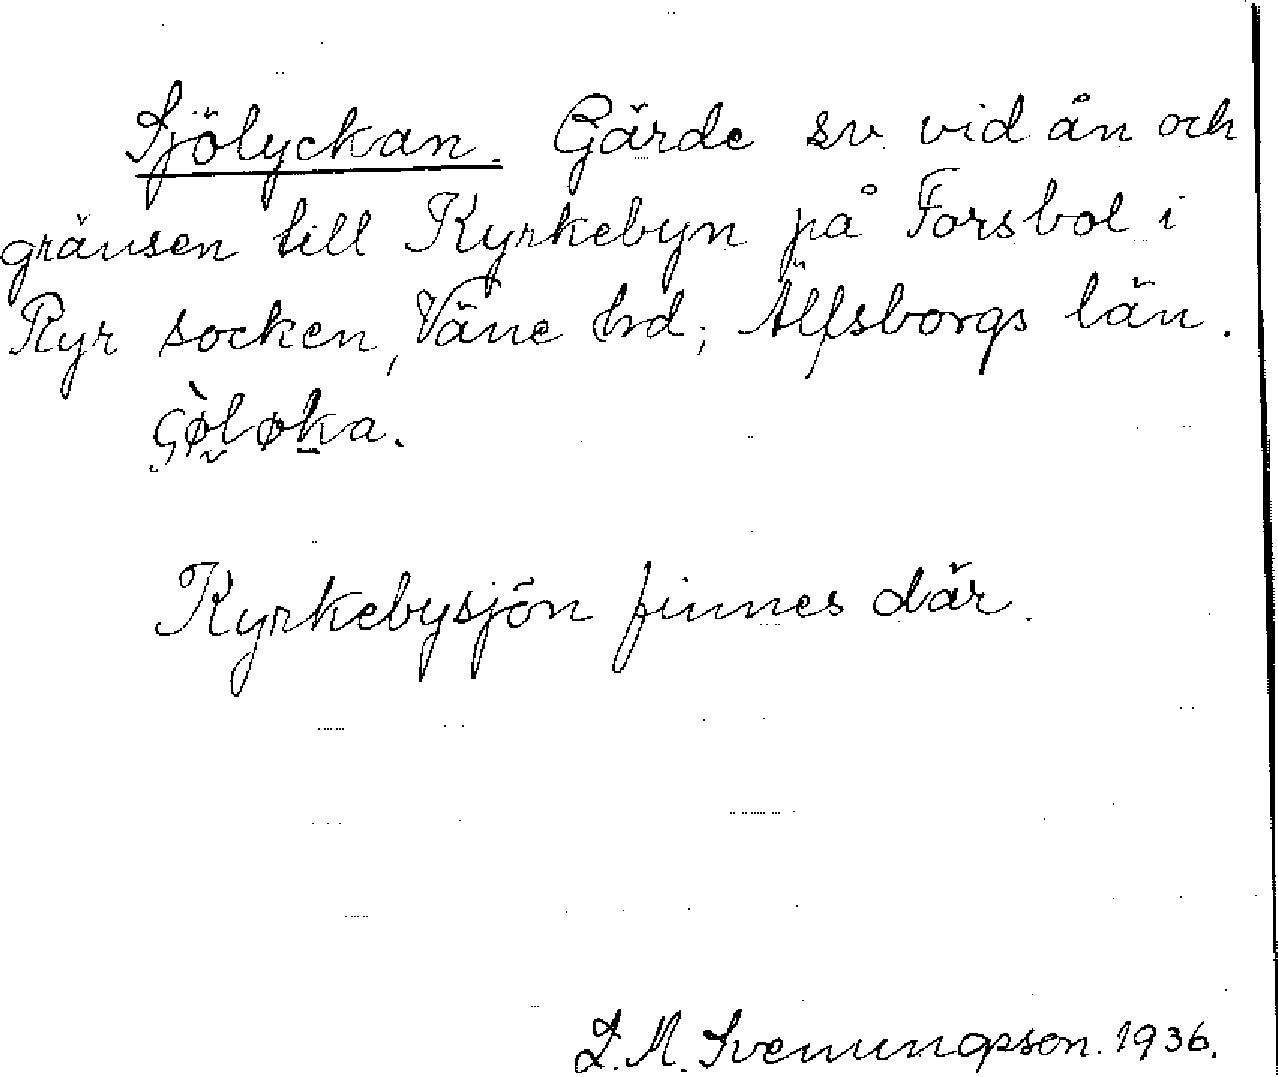 Sjölyckan. Gärde sv. vid ån och
gränsen till Kyrkebyn på Forsbol i
Ryr socken, Väne hd, Älfsborgs län.
Kyrkebysjön finnes där.
L. M. Svenungsson. 1936.